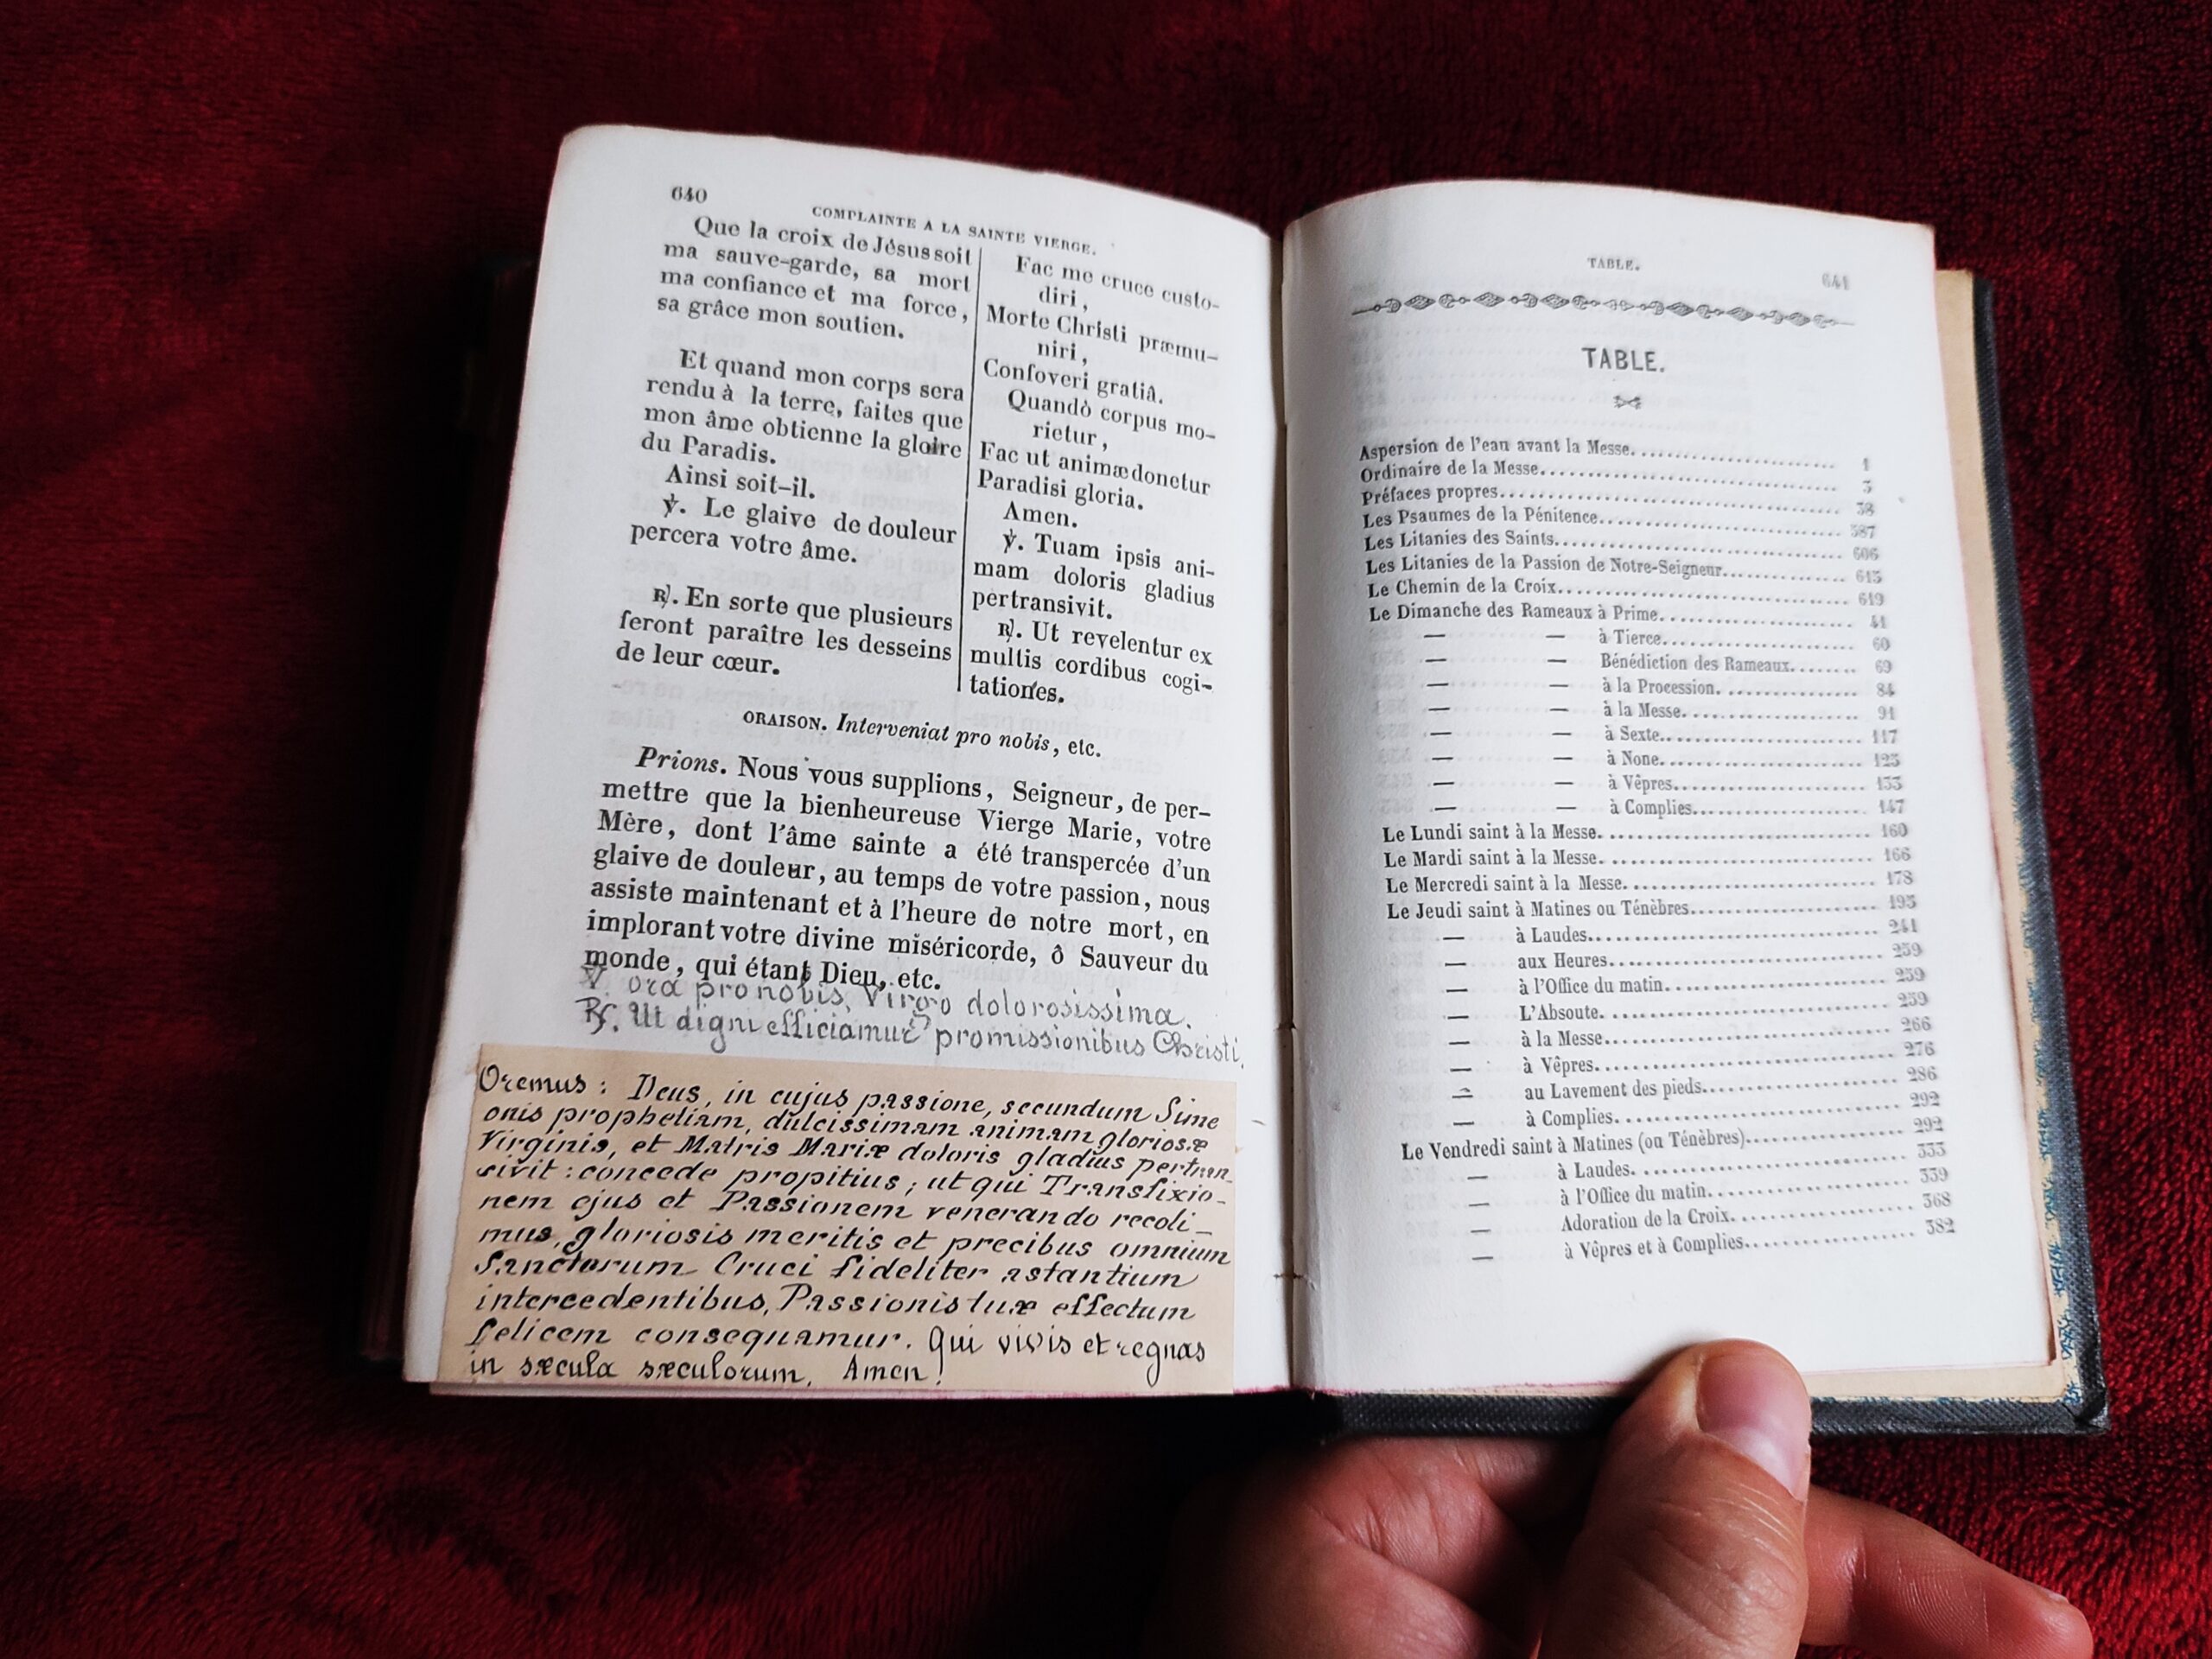 640
COMPLAINTE A LA SAINTE VIERGE.
Que la croix de Jésus soit
ma sauve-garde, sa mort
ma confiance et ma force,
sa grâce mon soutien.
Et quand mon corps sera
rendu à la terre, faites que
mon âme obtienne la gloire
du Paradis.
Ainsi soit-il.
℣. Le glaive de douleur
percera votre âme.
℟. En sorte que plusieurs
feront paraître les desseins
de leur cœur.
Fac me cruce custo-
diri,
Morte Christi præmu-
niri,
Confoveri gratiâ.
Quandò corpus mo-
rietur,
Fac ut animæ donetur
Paradisi gloria.
Amen.
℣. Tuam ipsis ani-
mam doloris gladius
pertransivit.
℟. Ut revelentur ex
multis cordibus cogi-
tationes.
ORAISON. Interveniat pro nobis, etc.
Prions. Nous vous supplions, Seigneur, de per-
mettre que la bienheureuse Vierge Marie, votre
Mère, dont l'âme sainte a été transpercée d'un
glaive de douleur, au temps de votre passion, nous
assiste maintenant et à l'heure de notre mort, en
implorant votre divine miséricorde, ô Sauveur du
monde, qui étant Dieu, etc.
V. ora pro nobis, Virgo dolorosissima.
℟. Ut digni efficiamur promissionibus Christi.
Oremus : Deus, in cujus passione, secundum Sime
onis prophetiam, dulcissimam animam gloriosæ
Virginis, et Matris Mariæ doloris gladius pertran_
sivit : concede propitius ; ut qui Transfixio-
nem ejus et Passionem venerando recoli_
mus, gloriosis meritis et precibus omnium
Sanctorum Cruci fideliter astantium
intercedentibus, Passionis tuæ effectum
felicem consequamur. Qui vivis et regnas
in sæcula sæculorum. Amen!
TABLE.
641
TABLE.
Aspersion de l'eau avant la Messe. 1
Ordinaire de la Messe. 3
Préfaces propres. 38
Les Psaumes de la Pénitence. 587
Les Litanies des Saints. 606
Les Litanies de la Passion de Notre-Seigneur. 613
Le Chemin de la Croix. 619
Le Dimanche des Rameaux à Prime. 41
— — à Tierce. 60
— — Bénédiction des Rameaux. 69
— — à la Procession. 84
— — à la Messe. 91
— — à Sexte. 117
— — à None. 125
— — à Vêpres. 133
— — à Complies. 147
Le Lundi saint à la Messe. 160
Le Mardi saint à la Messe. 166
Le Mercredi saint à la Messe. 178
Le Jeudi saint à Matines ou Ténèbres. 193
— à Laudes. 241
— aux Heures. 259
— à l'Office du matin. 259
— L'Absoute. 259
— à la Messe. 266
— à Vêpres. 276
— au Lavement des pieds. 286
— à Complies. 292
Le Vendredi saint à Matines (ou Ténèbres). 292
— à Laudes. 333
— à l'Office du matin. 339
— Adoration de la Croix. 368
— à Vêpres et à Complies. 382